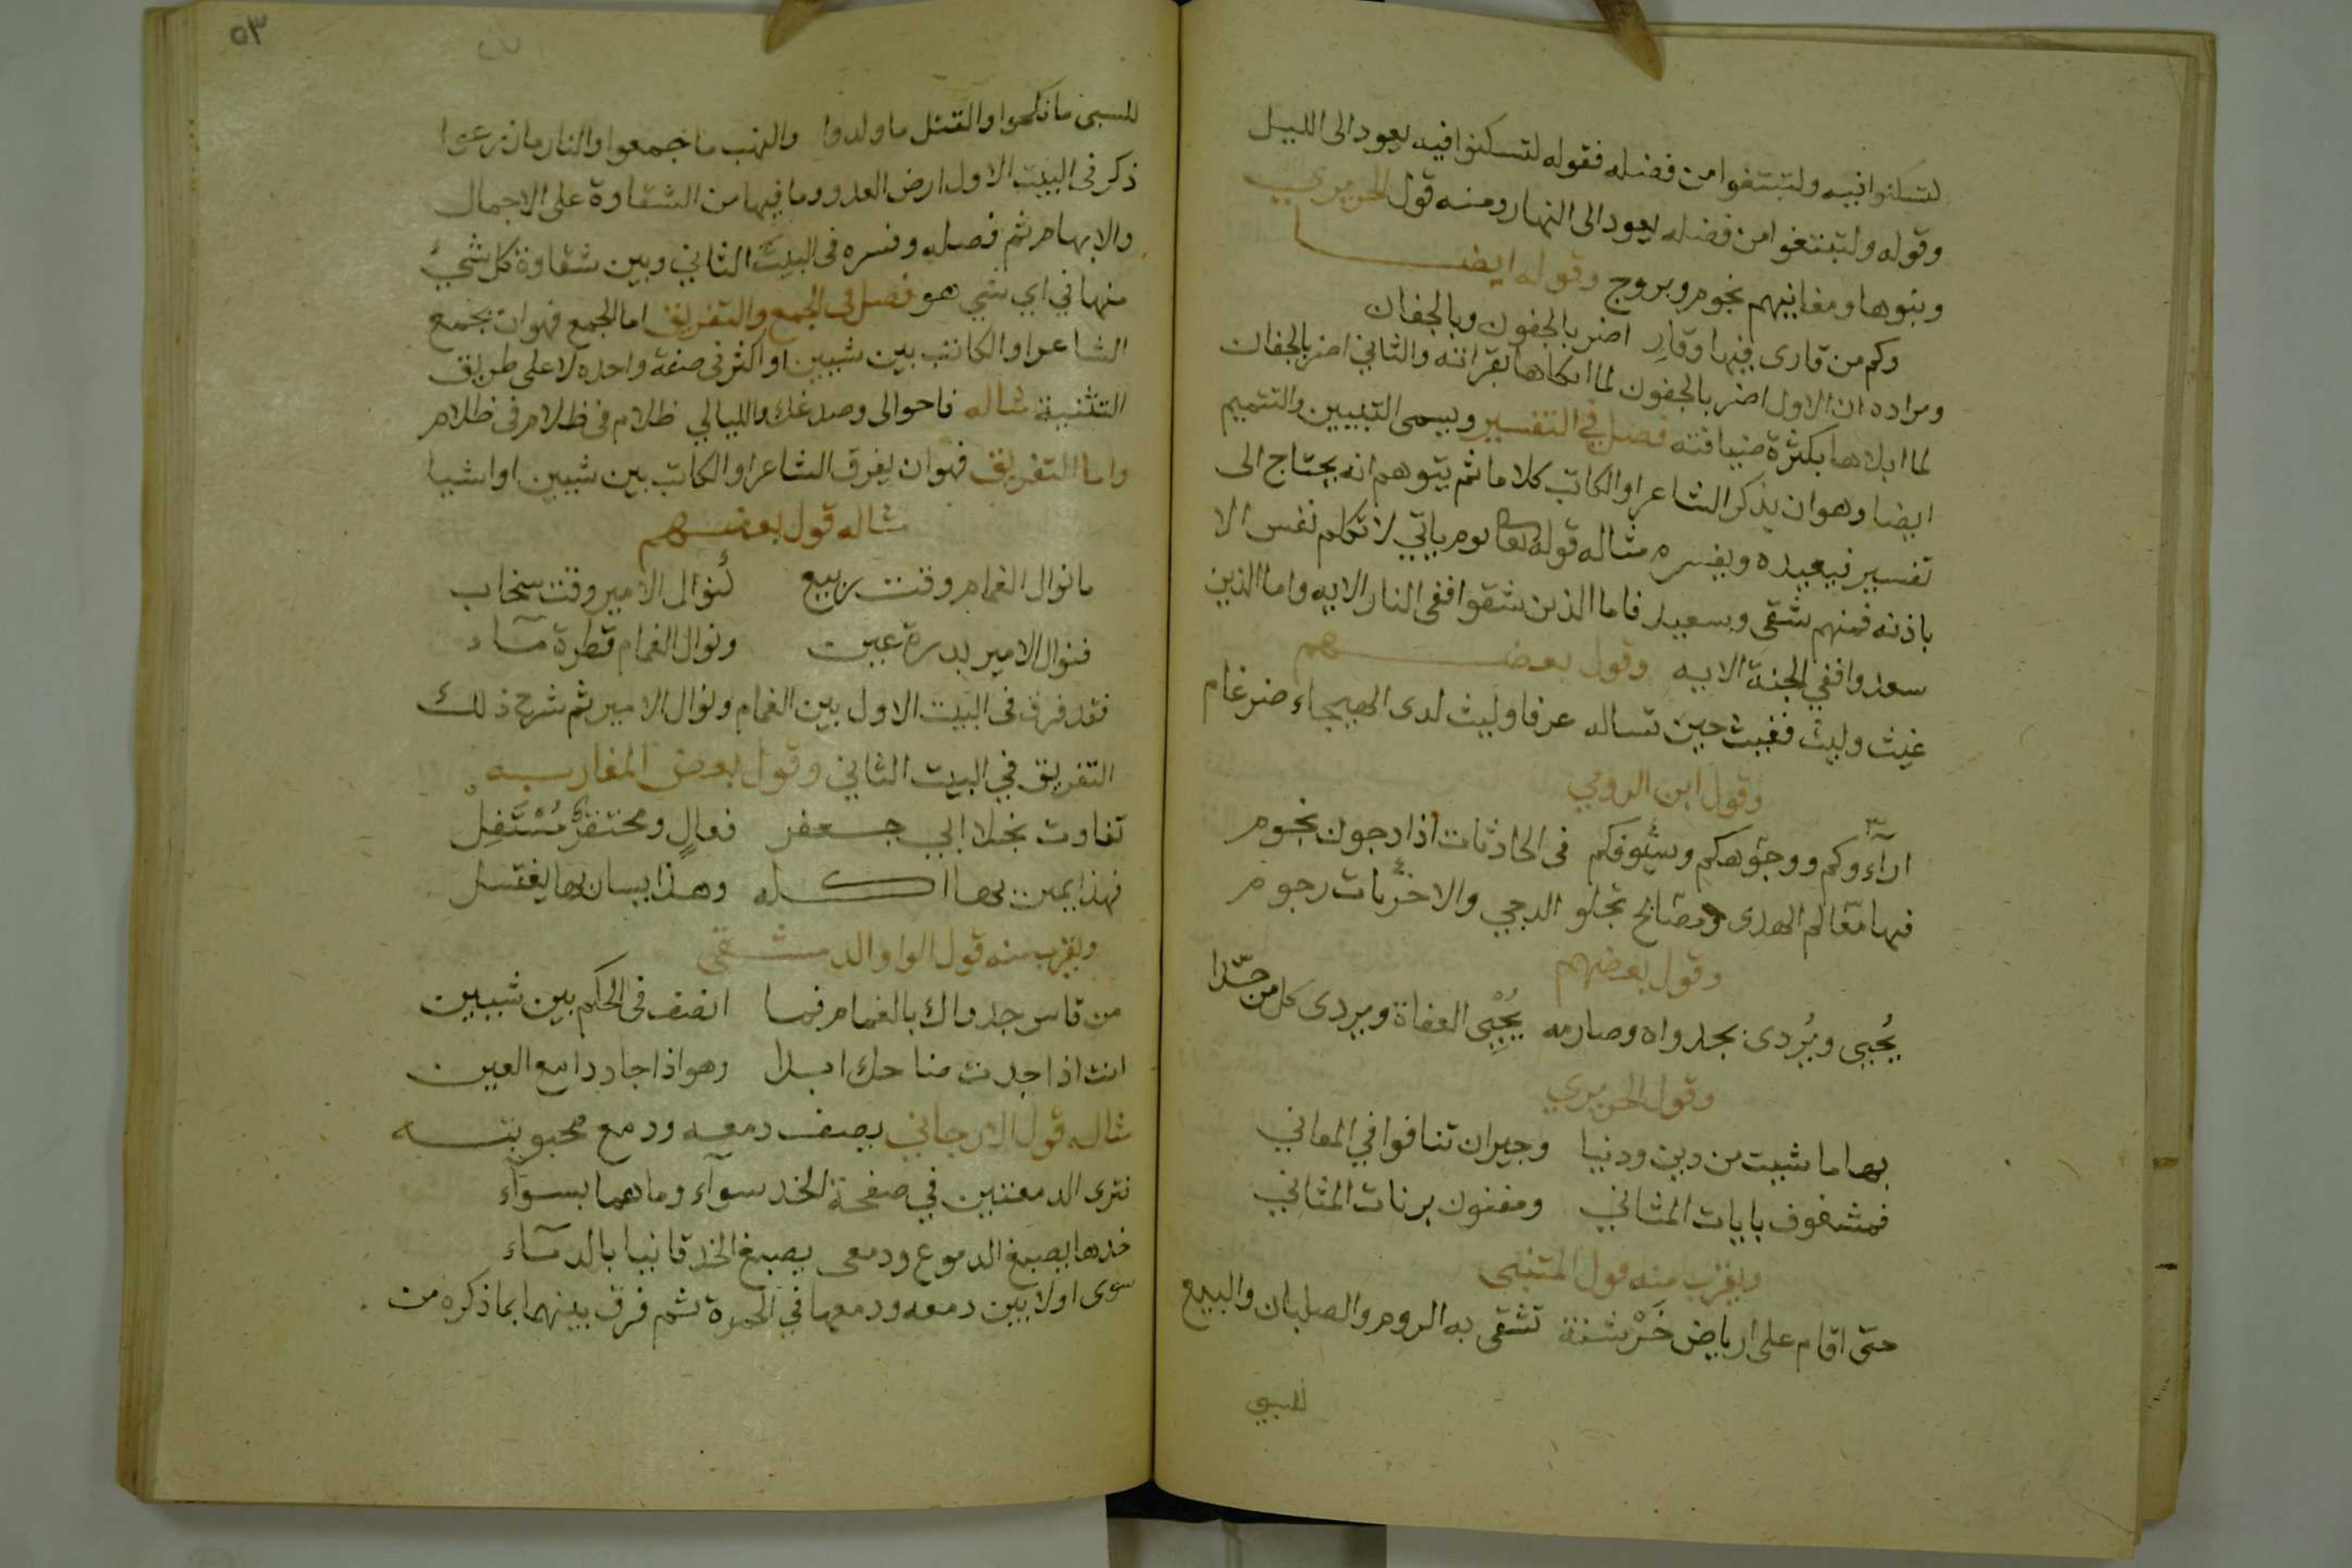 لتسكنوا فيه ولتبتغوا من فضله فقوله لتسكنوا فيه يعود الى الليل
وقوله ولتبتغوا من فضله يعود الى النهار ومنه قول الحريري
وبنوها ومغانيهم نجوم وبروج وقوله ايضا
وكم من قارى فيها وقارِ اضر بالجفون وبالجفان
ومراده ان الاول اضر بالجفون لما ابكاها بقراءته والثاني اضر بالجفان
لما ابلاها بكثرة ضيافته فصل في التفسير ويسمى التبيين والتتميم
ايضا وهو ان يذكر الشاعر او الكاتب كلاما ثم يتوهم انه يحتاج الى
تفسير فيعيده ويفسره مثاله قوله تعا يوم ياتي لا تكلم نفس الا
باذنه فمنهم شقي وسعيد فاما الذين شقوا ففي النار الايه واما الذين
سعدوا ففي الجنة الايه وقول بعضهم
غيث وليث فغيث حين تساله عرفا وليث لدى الهيجاء ضرغام
وقول ابن الرومي
ارآؤكم ووجوهكم وسيوفكم في الحادثات اذا دجون نجوم
فيها معالم للهدى ومصابح تجلو الدجي والاخريات رجوم
وقول بعضهم
يُحيى ويُردى بجدواه وصارمه يُحْيِى العفاة ويردى كل من حسدا
وقول الحريري
بها ما شيت من دين ودنيا وجيران تنافوا في المعاني
فمشغوف بايات المثاني ومفتون برنات المثاني
ويقرب منه قول المتنبى
حتى اقام على ارباض خَرْشنة تشقى به الروم والصلبان والبيع
للسبي
٥٣
للسبى ما نكحوا والقتل ما ولدوا والنهب ما جمعوا والنار ما زرعوا
ذكر في البيت الاول ارض العدو وما فيها من الشقاوة على الاجمال
والابهام ثم فصله وفسره في البيت الثاني وبين شقاوة كل شيء
منها في اي شي هو فصل في الجمع والتفريق اما الجمع فهو ان يجمع
الشاعر او الكاتب بين شيين او اكثر في صفة واحده لا على طريق
التثنية مثاله فاحوالى وصدغك والليالي ظلام في ظلام في ظلام
واما التفريق فهو ان يفرق الشاعر او الكاتب بين شيين او اشيا
مثاله قول بعضهم
ما نوال الغمام وقت ربيع كنوال الامير وقت سخاب
فنوال الامير بدرة عين ونوال الغمام قطرة مآء
فقد فرق في البيت الاول بين الغمام ونوال الامير ثم شرح ذلك
التفريق في البيت الثاني وقول بعض المغاربه
تفاوت نجلا ابي جعفر فعالٍ ومحتقر مُسْتَفِل
فهذا يمين بها اكله وهذا يسار بها يغتسل
ويقرب منه قول الواوا الدمشقى
من قاس جدواك بالغمام فما انصف في الحكم بين شيين
انت اذا جدت ضاحك ابدا وهو اذا جاد دامع العين
مثاله قول الارجاني يصف دمعه ودمع محبوبته
نترى الدمعتين في صفحة الخد سوآء وما هما بسوآء
خدها يصبغ الدموع ودمعى يصبغ الخد قانيا بالدمآء
سوى اولا بين دمعه ودمعها في الحمرة ثم فرق بينهما بما ذكره من